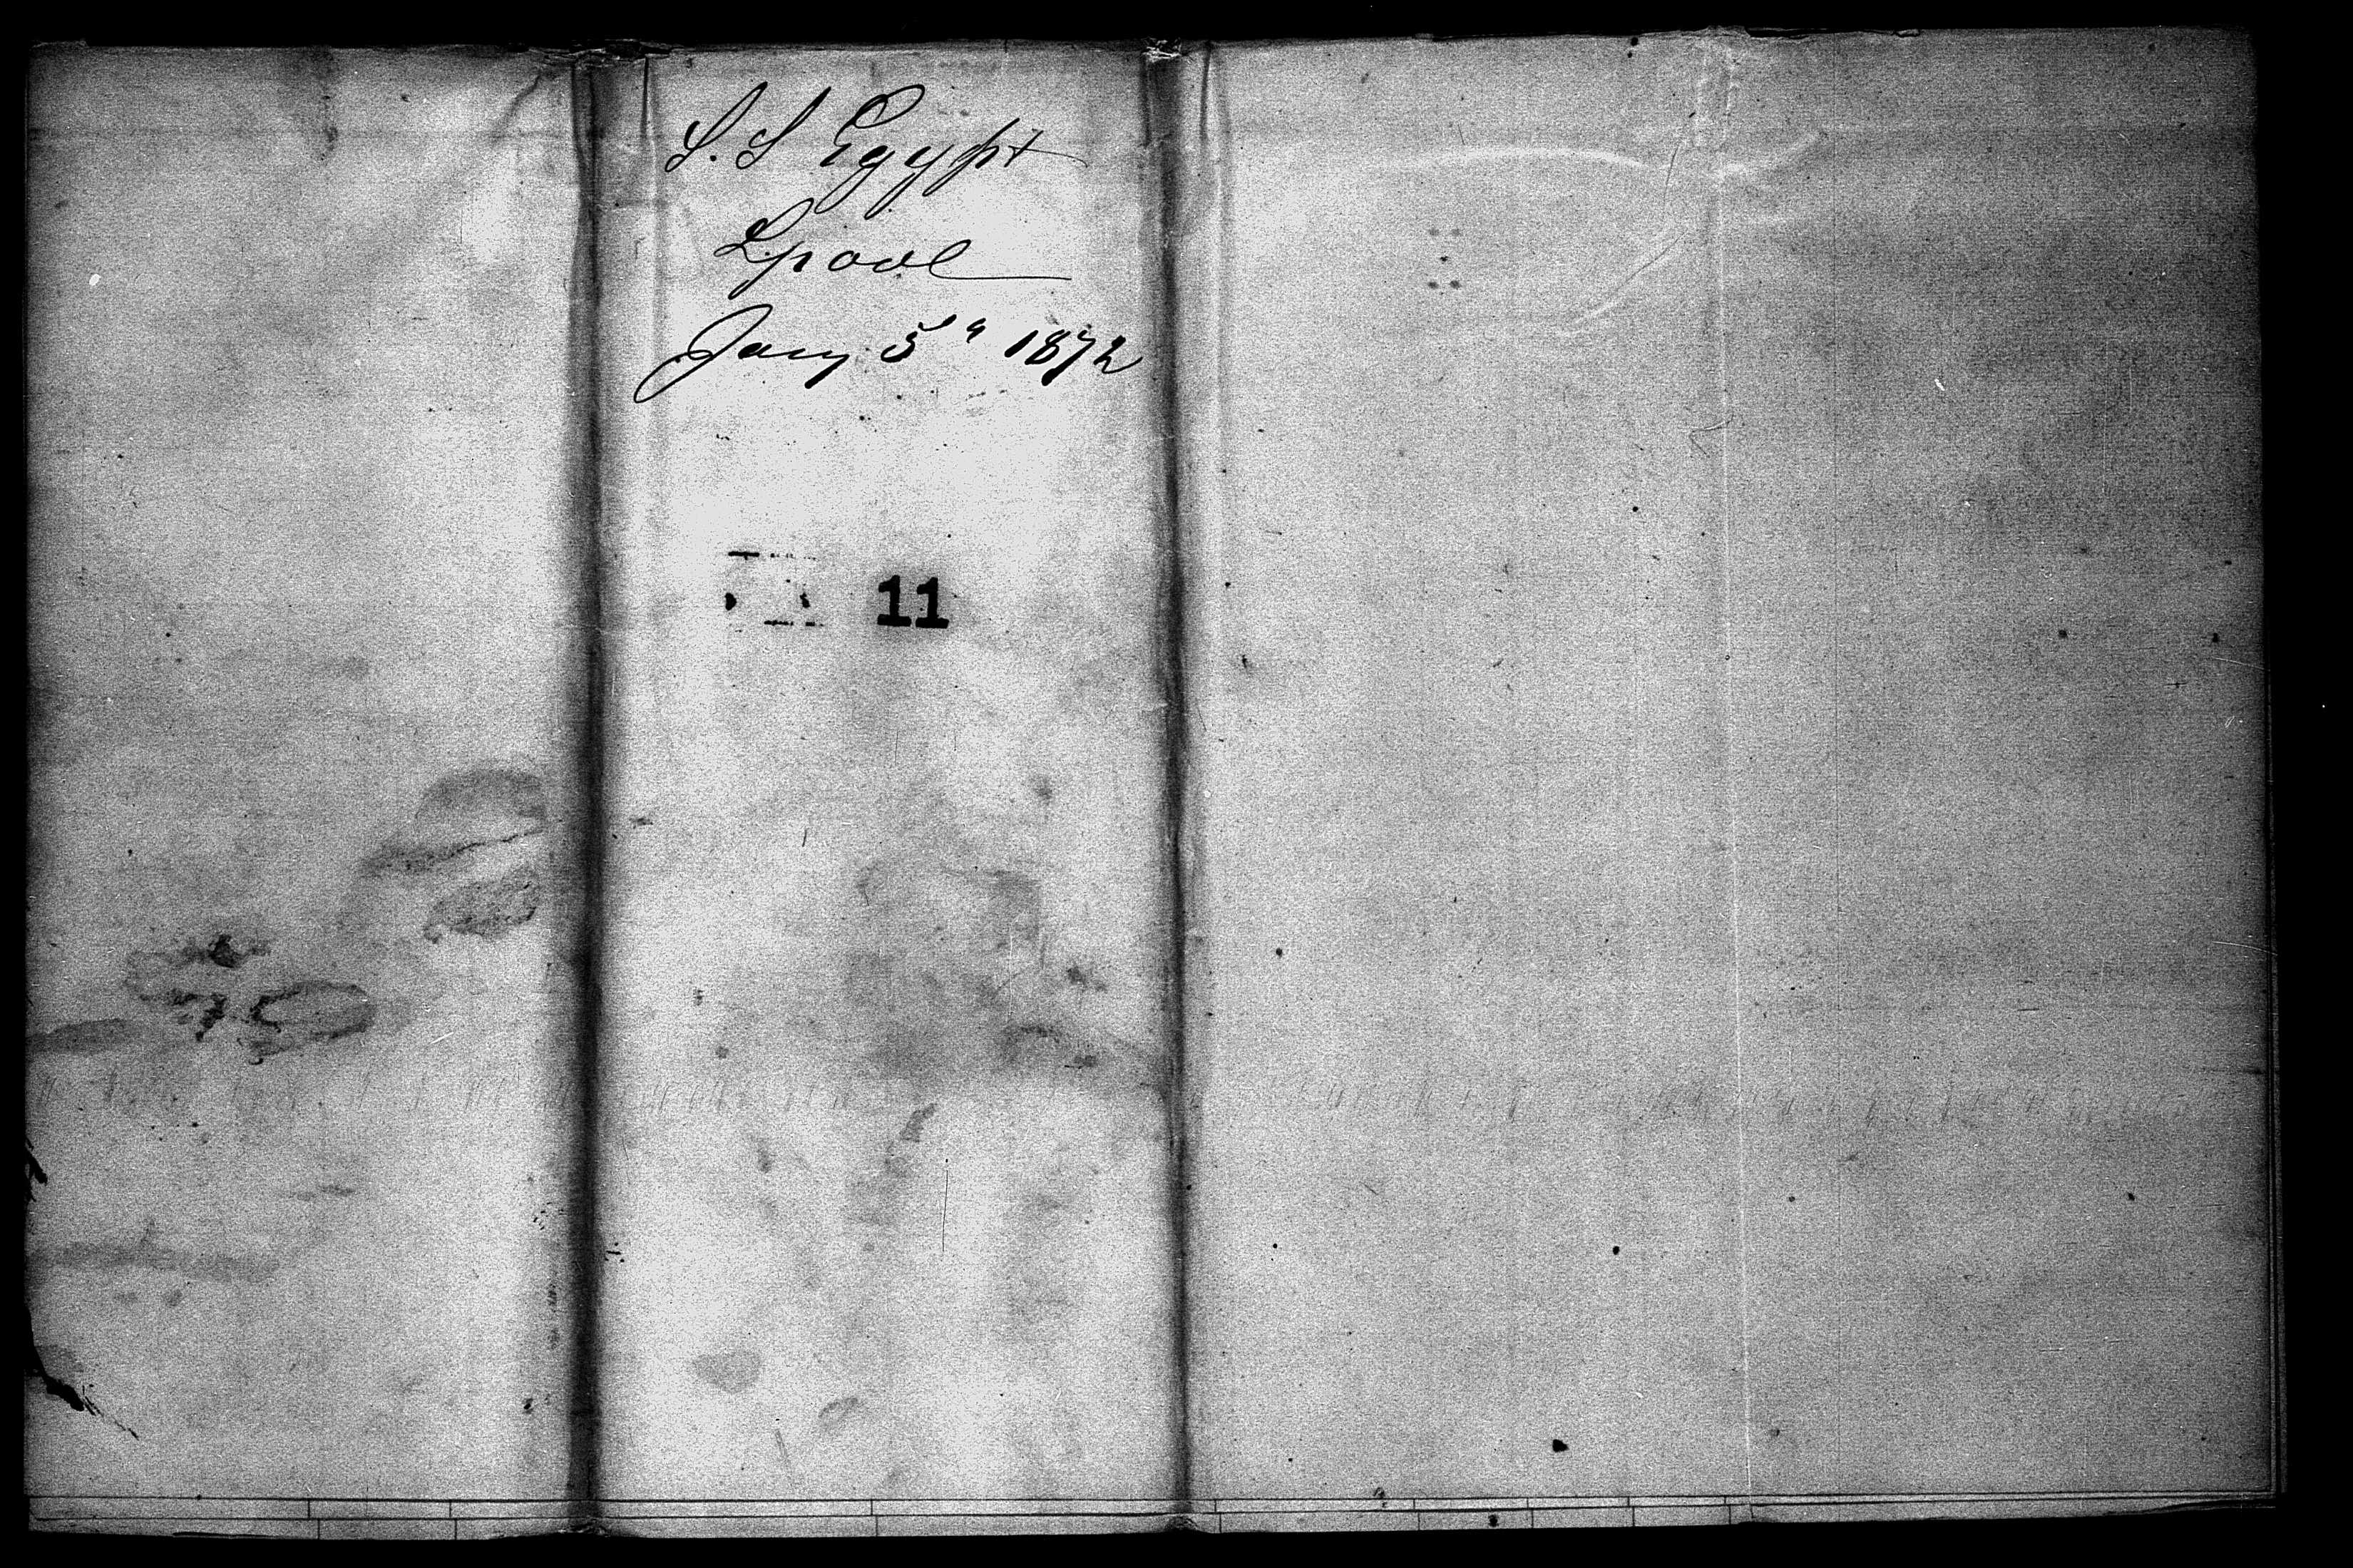 S. S Egypt
Lpool
Jany 5" 1872
11